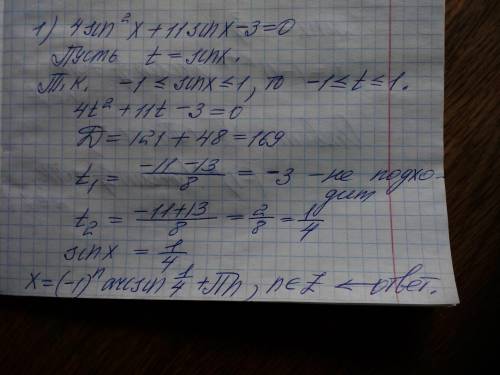 1) 4sin²x+11sinx-3=0
Пусть t=sinx.
Т.к. -1≤sinx≤1, то -1≤t≤1.
4t²+11t-3=0
Д=121+48=169
t₁=(-11-13)/8=-3 - не подхо-
дит
t₂=(-11+13)/8=2/8=1/4
sinx=1/4
x=(-1)ⁿarcsin 1/4+Пn, n∈Z ← ответ.